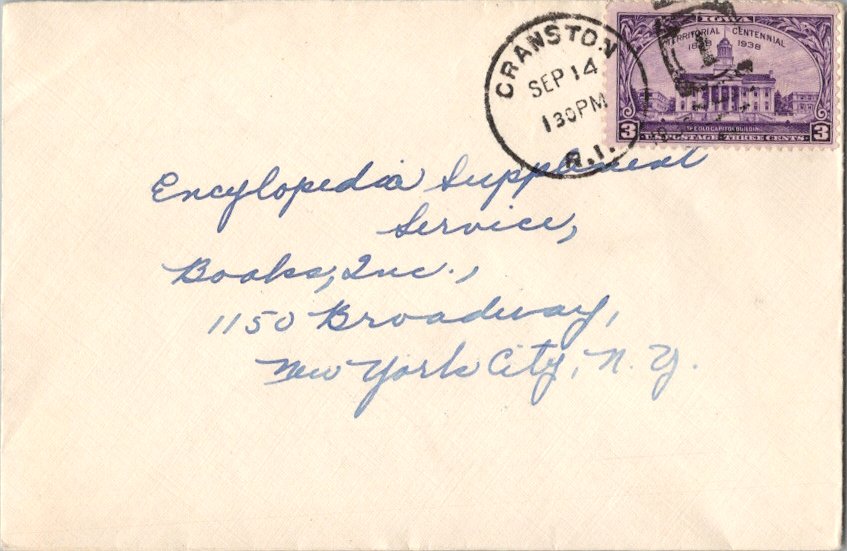 CRANSTON
SEP 14
130PM
R.I.
IOWA
TERRITORIAL CENTENNIAL
1838 1938
3 THE OLD CAPITOL BUILDING 3
U.S. POSTAGE · THREE CENTS
Encylopedia Supplement
Service,
Books, Inc.,
1150 Broadway,
New York City, N. Y.